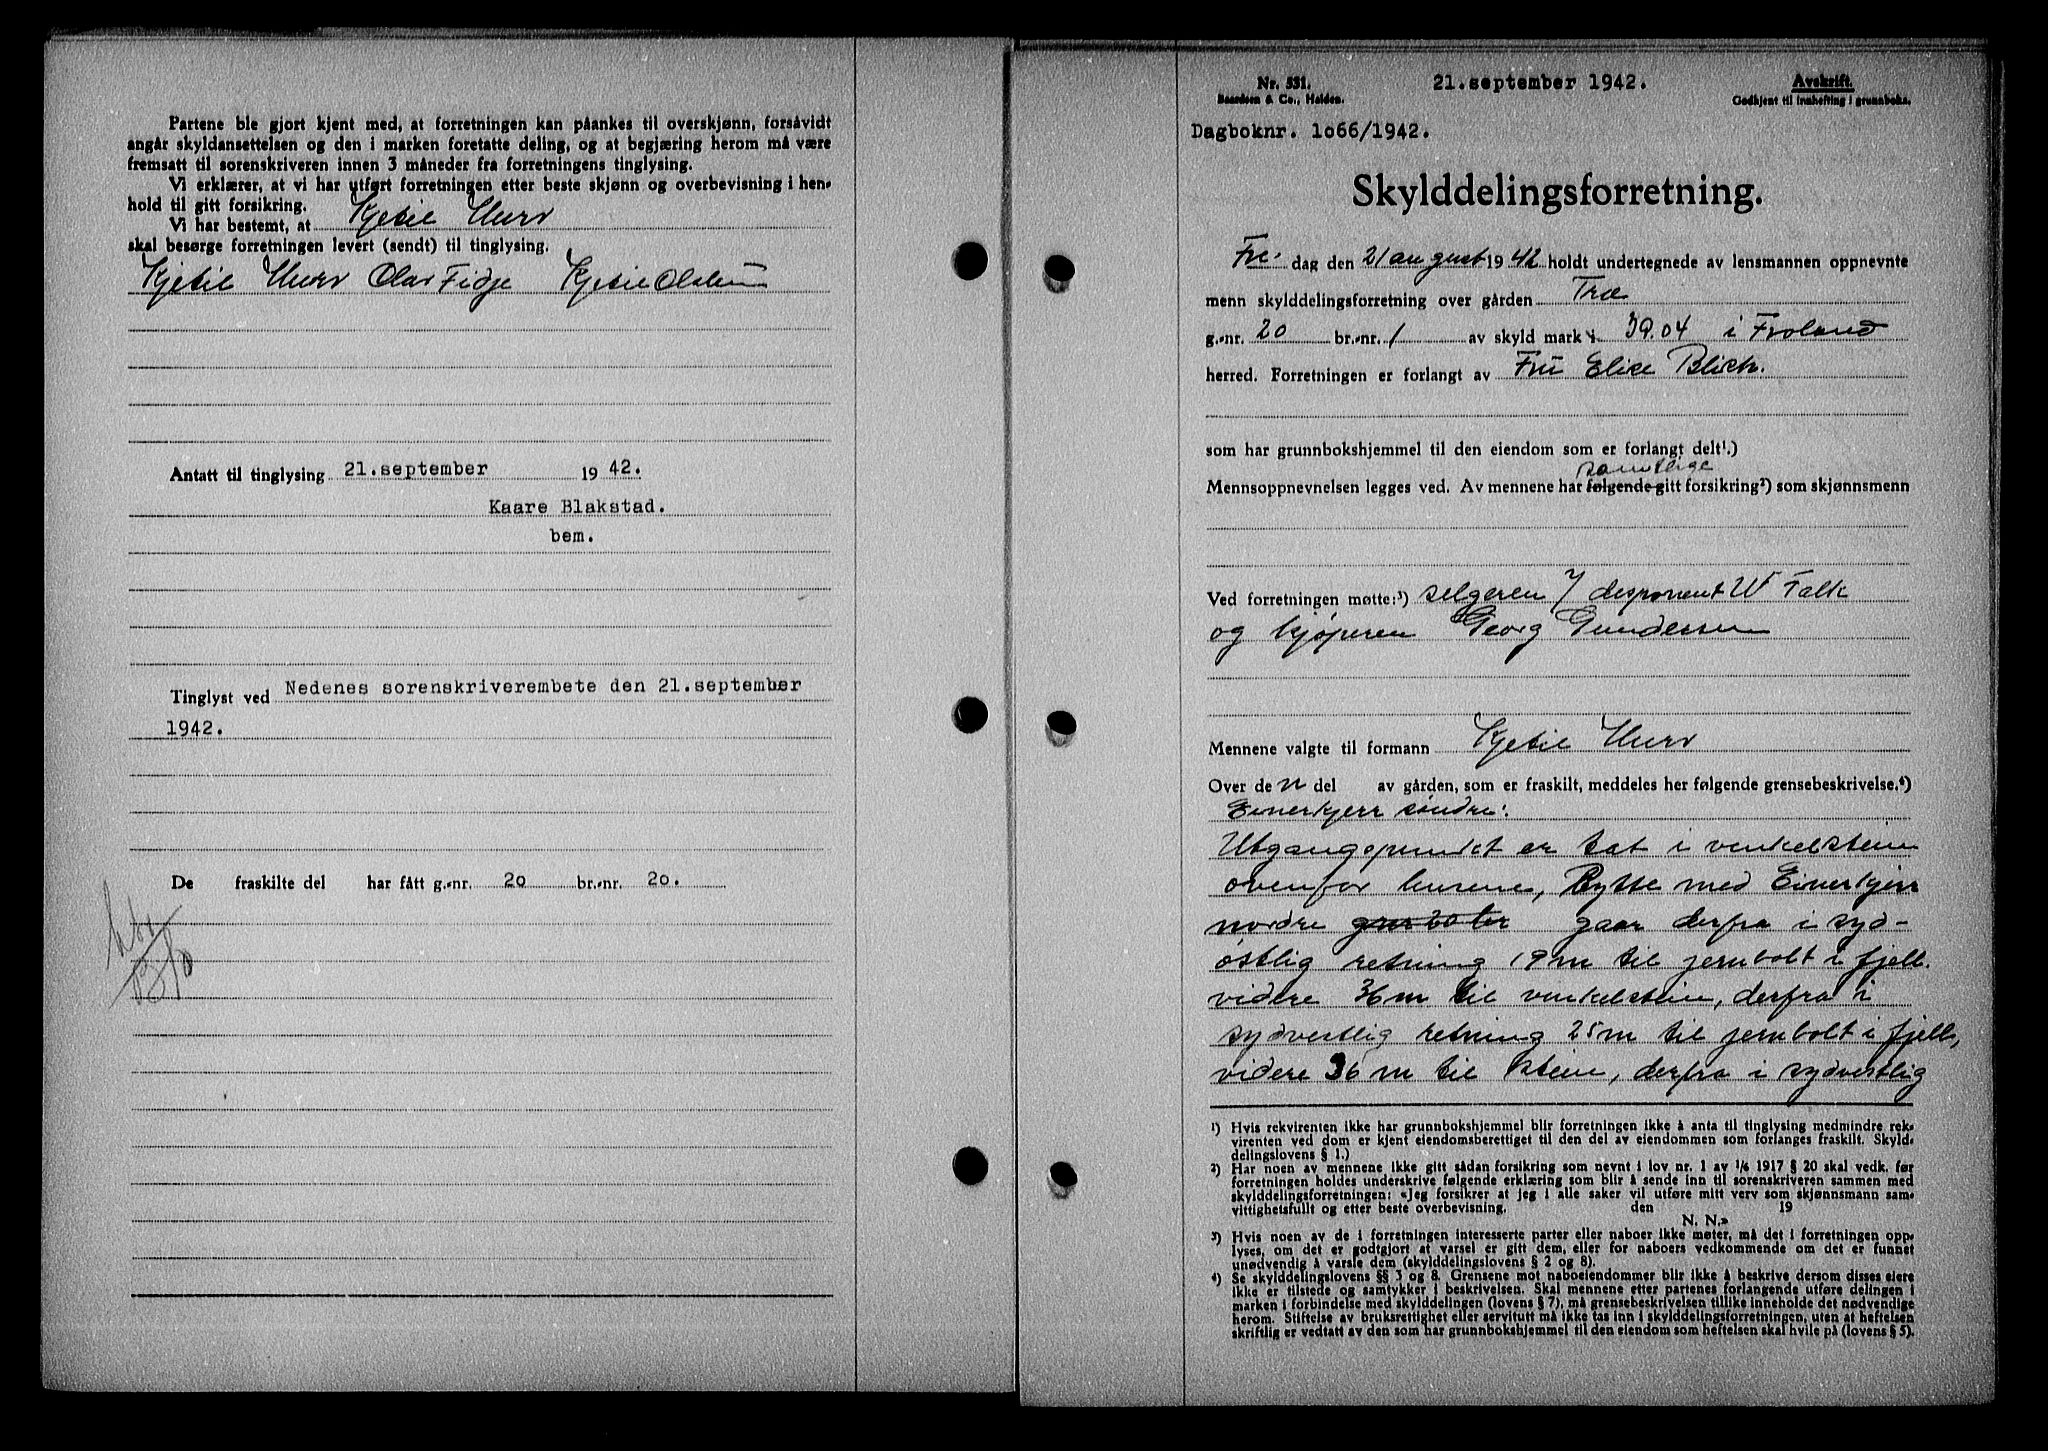 Partene ble gjort kjent med, at forretningen kan påankes til overskjønn, forsåvidt
angår skyldansettelsen og den i marken foretatte deling, og at begjæring herom må være
fremsatt til sorenskriveren innen 3 måneder fra forretningens tinglysing.
Vi erklærer, at vi har utført forretningen etter beste skjønn og overbevisning i hen-
hold til gitt forsikring.
Vi har bestemt, at Kjetil Hurv
skal besørge forretningen levert (sendt) til tinglysing.
Kjetil Hurv Olav Fidje Kjetil
Antatt til tinglysing 21.september 1942.
Kaare Blakstad.
bem.
Tinglyst ved Nedenes sorenskriverembete den 21.september
1942.
De fraskilte del har fått g.-nr. 20 br.-nr. 20.
Nr. 531.
Baardsen & Co., Halden.
21.september 1942.
Avskrift.
Godkjent til innhefting i grunnboka.
Dagboknr. 1o66/1942.
Skylddelingsforretning.
Fre- dag den 21 august 1942 holdt undertegnede av lensmannen oppnevnte
menn skylddelingsforretning over gården Træ
g.-nr. 20 br.-nr. 1 av skyld mark 39.04 i Froland
herred. Forretningen er forlangt av Fru Elise Blick.
som har grunnbokshjemmel til den eiendom som er forlangt delt¹.)
samtlige
Mennsoppnevnelsen legges ved. Av mennene har følgende gitt forsikring²) som skjønnsmenn
Ved forretningen møtte:³) selgeren v/ disponent W Falk
og kjøperen Georg Gundersen
Mennene valgte til formann Kjetil Hurv
Over de n del av gården, som er fraskilt, meddeles her følgende grensebeskrivelse.⁴)
Einerkjerr søndre:
Utgangspunktet er tat i vinkelstein
ovenfor husene, Bytte med Einerkjerr
nordre gaar derfra i syd-
østlig retning 19 m til jernbolt i fjell.
videre 36 m til vinkelstein, derfra i
sydvestlig retning 25 m til jernbolt i fjell,
videre 36 m til stein, derfra i sydvestlig
¹) Hvis rekvirenten ikke har grunnbokshjemmel blir forretningen ikke å anta til tinglysing medmindre rek-
virenten ved dom er kjent eiendomsberettiget til den del av eiendommen som forlanges fraskilt. Skyld-
delingslovens § 1.)
²) Har noen av mennene ikke gitt sådan forsikring som nevnt i lov nr. 1 av 1/6 1917 § 20 skal vedk. før
forretningen holdes underskrive følgende erklæring som blir å sende inn til sorenskriveren sammen med
skylddelingsforretningen: «Jeg forsikrer at jeg i alle saker vil utføre mitt verv som skjønnsmann sam-
vittighetsfullt og etter beste overbevisning. den 19
N. N.»
³) Hvis noen av de i forretningen interesserte parter eller naboer ikke møter, må det i forretningen opp-
lyses, om det er godtgjort at varsel er gitt dem, eller for naboers vedkommende om det er funnet
unødvendig å varsle dem (skylddelingslovens § 2 og 8).
⁴) Se skylddelingslovens §§ 3 og 8. Grensene mot naboeiendommer blir ikke å beskrive dersom disses eiere
ikke er tilstede og samtykker i beskrivelsen. Skal mennene etter partenes forlangende utføre delingen i
marken i forbindelse med skylddelingen (lovens § 7), må grensebeskrivelsen tillike inneholde det nødvendige
herom. Stiftelse av bruksrettighet eller servitutt må ikke tas inn i skylddelingsforretningen, uten at heftelsen
skriftlig er vedtatt av den som har grunnbokshjemmel til den eiendom som heftelsen skal hvile på (lovens § 5).